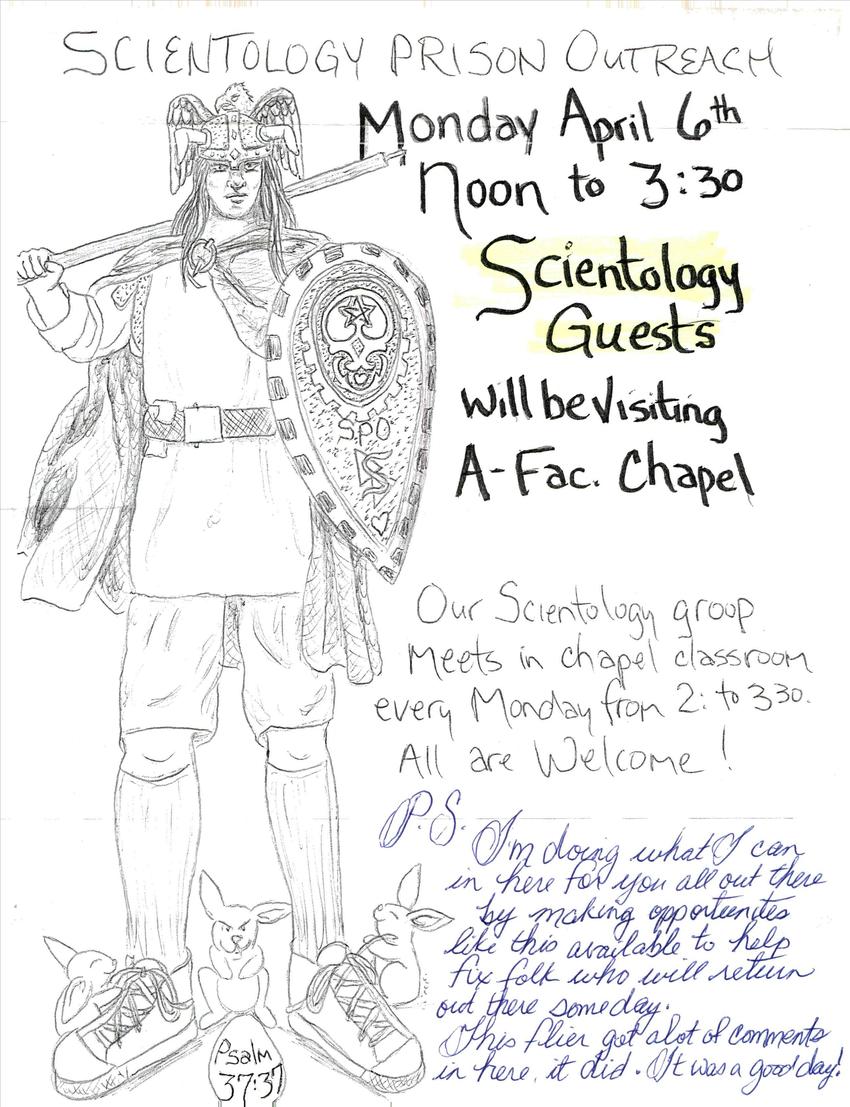 SCIENTOLOGY PRISON OUTREACH
Monday April 6th
Noon to 3:30
Scientology
Guests
Will be Visiting
A-Fac. Chapel
S.P.O
Our Scientology group
Meets in chapel classroom
every Monday from 2: to 3 30.
All are Welcome!
P.S.
I'm doing what I can
in here for you all out there
by making opportunites
like this available to help
fix folk who will return
out there someday.
This flier got alot of comments
in here, it did. It was a good day!
Psalm
37:37